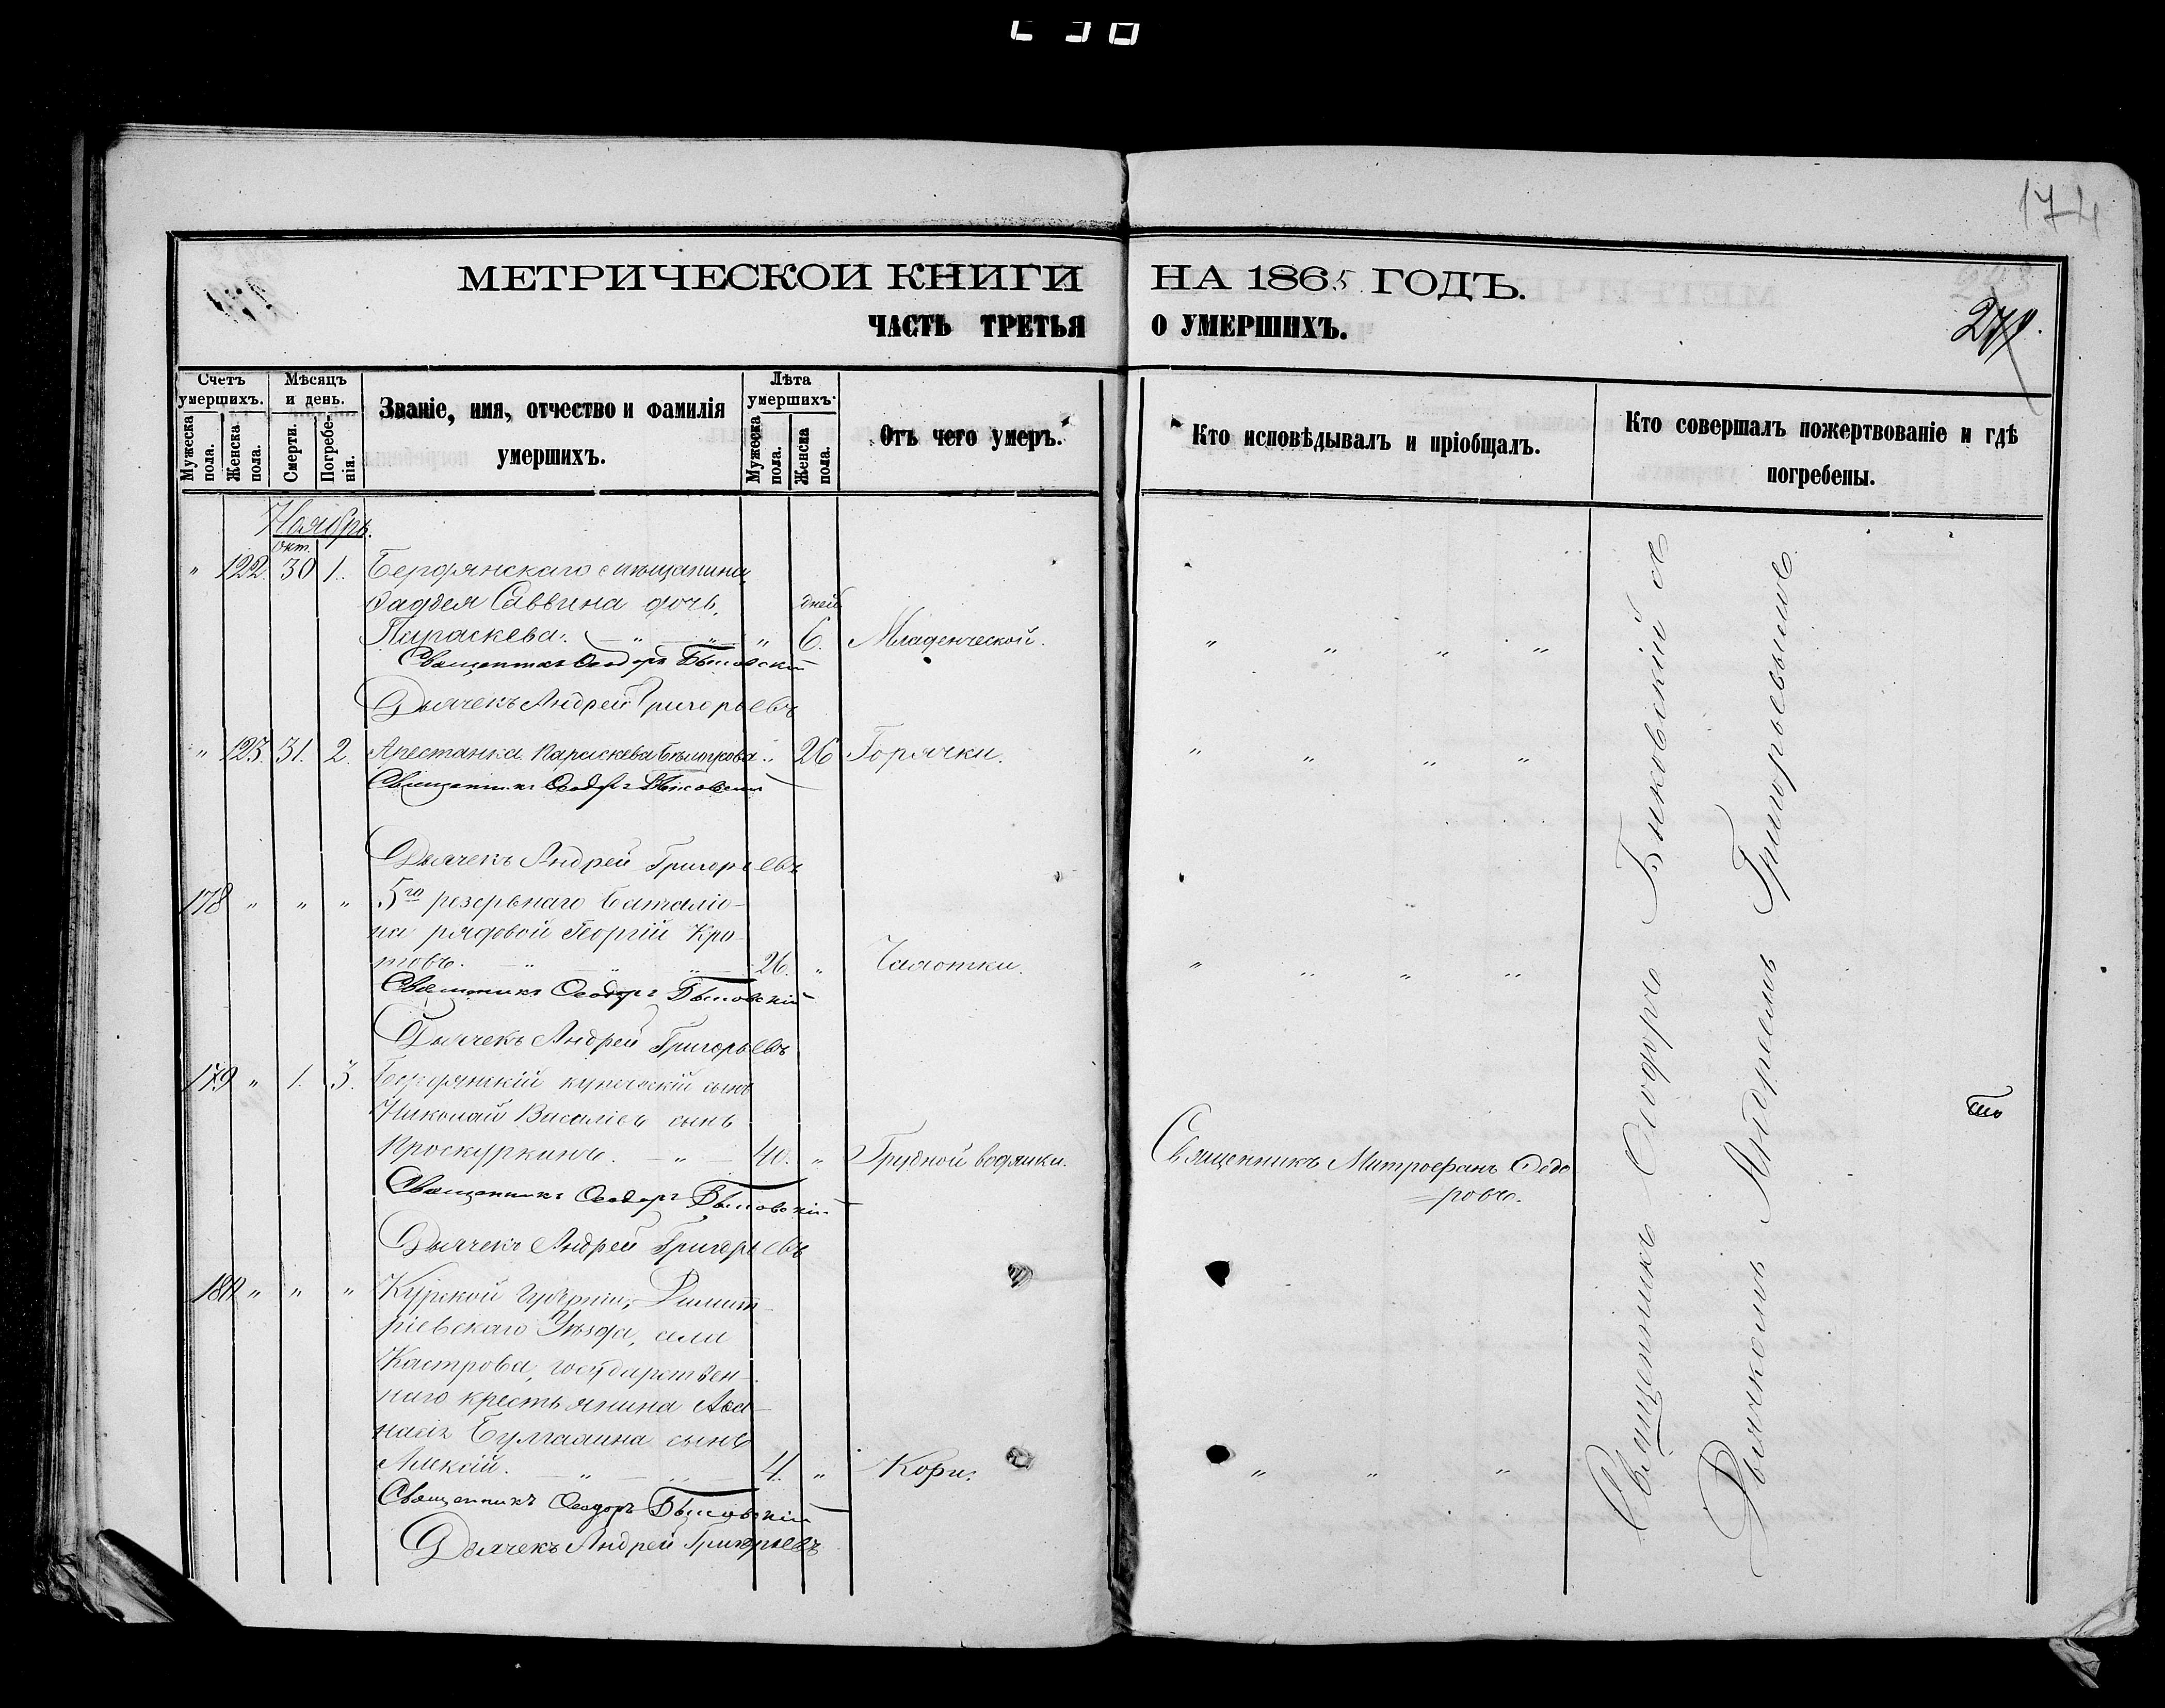 174
МЕТРИЧЕСКОЙ КНИГИ НА 1865 ГОДЪ.
ЧАСТЬ ТРЕТЬЯ О УМЕРШИХЪ.
Счетъ умершихъ.
Мужеска пола.
Женска пола.
Мѣсяцъ и день.
Смерти.
Погребенія.
Званіе, имя, отчество и фамилія
умершихъ.
Лѣта умершихъ.
Мужеска пола.
Женска пола.
Отъ чего умеръ.
Кто исповѣдывалъ и пріобщалъ.
Кто совершалъ пожертвованіе и гдѣ
погребены.
Ноябрь.
окт.
" 122. 30 1. Бердянскаго мѣщанина
Фаддея Саввина дочь, дней
Параскева. — " — " — " 6. Младенческой. " " " "
Священникъ Ѳеодоръ Быковскій
Дьячекъ Андрей Григорьевъ
" 123. 31. 2. Арестанка Параскева " 26 Горячки. " " " "
Священникъ Ѳеодоръ Быковскій
Дьячекъ Андрей Григорьевъ
178 " " " 5го резервнаго баталіо-
на рядовой Георгій Кро-
товъ. — " — " — " — 26. " Чахотки. " " " "
Священникъ Ѳеодоръ Быковскій
Дьячекъ Андрей Григорьевъ
179 " 1. 3. Бердянскій купеческій сынъ
Николай Василіев сынъ
Проскуркинъ. — " — 40. " Грудной водянки. Священникъ Митрофанъ Федо
ровъ.
Священникъ Ѳеодоръ Быковскій
Дьячекъ Андрей Григорьевъ
180 " " " Курской губерніи, Димит-
ріевскаго Уѣзда, села
Кастрова, государствен-
наго крестьянина Аѳа-
насія Булгакина сынъ
Алексій. — " — " — 4. " Кори. " " "
Священникъ Ѳеодоръ Быковскій
Дьячекъ Андрей Григорьевъ
Священникъ Ѳеодоръ Быковскій с
Дьячкомъ Андреемъ Григорьевымъ